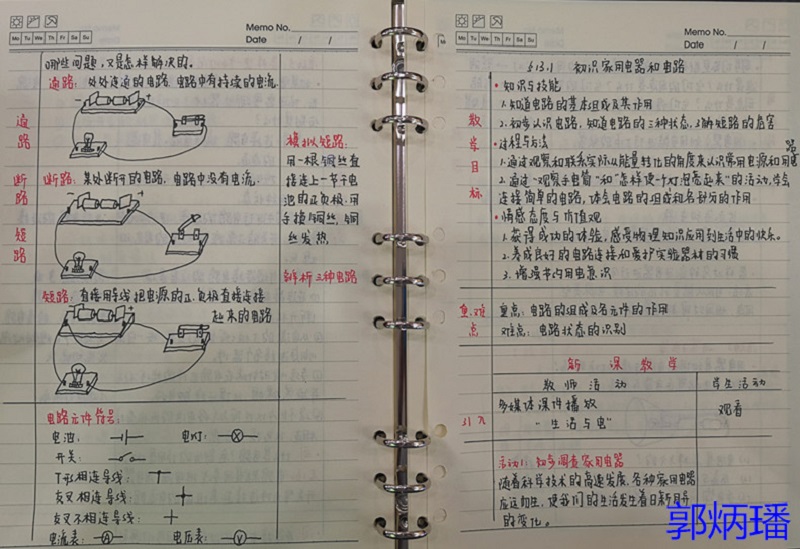 Memo No.
Mo Tu We Th Fr Sa Su
Date / /
哪些问题,又是怎样解决的。
通路
通路:处处连通的电路,电路中有持续的电流
断路
断路:某处断开的电路,电路中没有电流.
短路
短路:直接用导线把电源的正、负极直接连接
起来的电路
模拟短路:
用一根铜丝直
接连上一节干电
池的正负极,用
手摸铜丝,铜
丝发热,
辨析三种电路
电路元件符号:
电池:
电灯:
开关:
T形相连导线:
交叉相连导线:
交叉不相连导线:
电流表: A
电压表: V
Memo No.
Mo Tu We Th Fr Sa Su
Date / /
§13.1 初识家用电器和电路
教学目标
·知识与技能
1.知道电路的基本组成及其作用
2.初步认识电路,知道电路的三种状态,了解短路的危害
·过程与方法
1.通过观察和联系实际从能量转化的角度来认识常用电源和用电
器
2.通过“观察手电筒”和“怎样使一个灯泡亮起来”的活动,学会
连接简单的电路,体会电路的组成和各部分的作用
·情感态度与价值观
1.获得成功的体验,感受物理知识应用到生活中的快乐。
2.养成良好的电路连接和爱护实验器材的习惯
3.增强节约用电意识
重、难点
重点:电路的组成及各元件的作用
难点:电路状态的识别
新课教学
教师活动
学生活动
引入
多媒体课件播放
“生活与电”
观看
活动1:初步调查家用电器
随着科学技术的高速发展,各种家用电器
应运而生,使我们的生活发生着日新月异
的变化。
郭炳璠